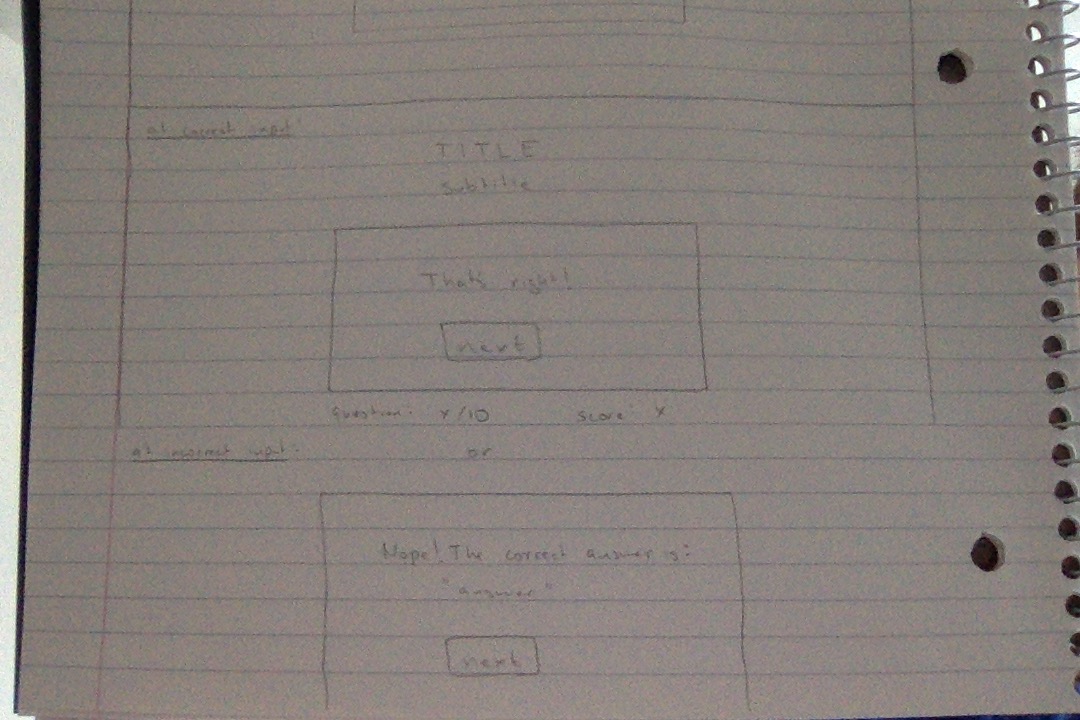 at correct input:
TITLE
subtitle
That's right!
next
question: x/10 score: x
at incorrect input:
or
Nope! The correct answer is:
"answer"
next